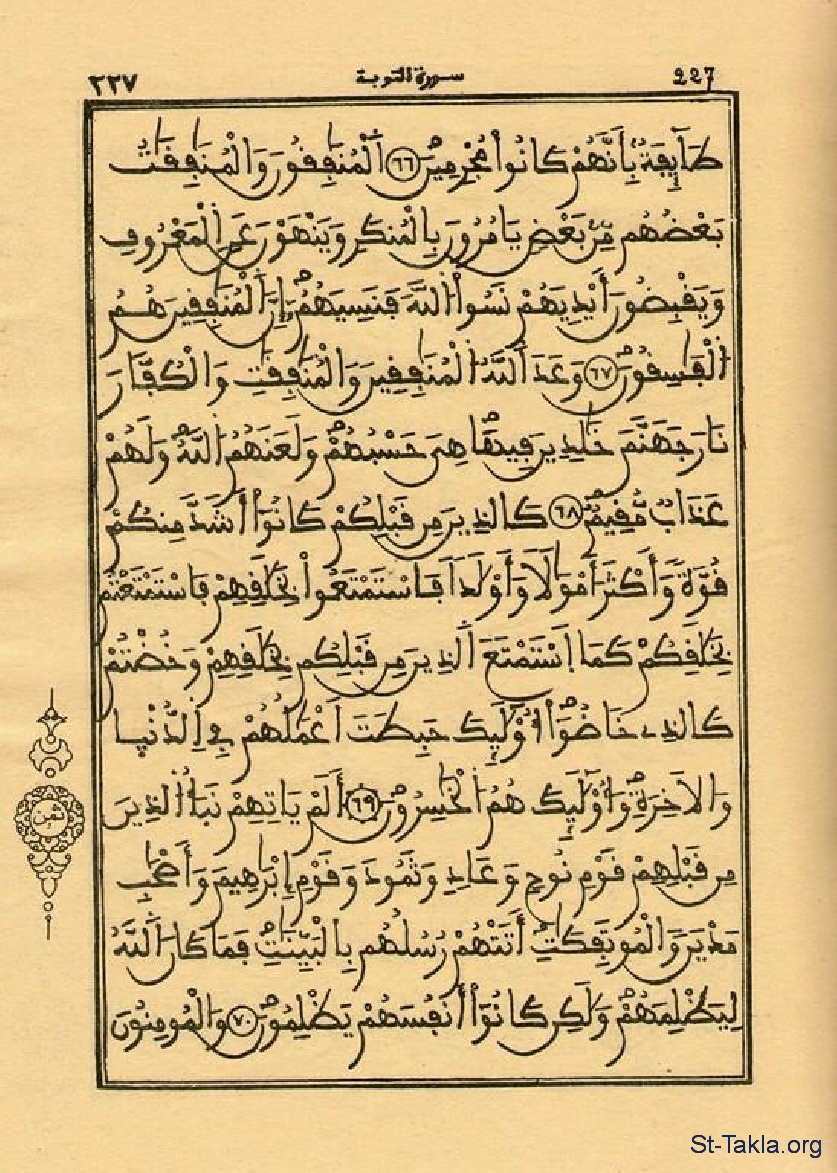 ٢٢٧ سورة التوبة 227
طَآئِفَةَۢ بِأَنَّهُمْ كَانُواْ مُجْرِمِينَ ٦٦ اَ۬لْمُنَٰفِقُونَ وَالْمُنَٰفِقَٰتُ
بَعْضُهُم مِّنۢ بَعْضٖ يَامُرُونَ بِالْمُنكَرِ وَيَنْهَوْنَ عَنِ اِ۬لْمَعْرُوفِ
وَيَقْبِضُونَ أَيْدِيَهُمْ نَسُواْ اُ۬للَّهَ فَنَسِيَهُمُۥٓ إِنَّ اَ۬لْمُنَٰفِقِينَ هُمُ
اُ۬لْفَٰسِقُونَ ٦٧ وَعَدَ اَ۬للَّهُ اُ۬لْمُنَٰفِقِينَ وَالْمُنَٰفِقَٰتِ وَالْكُفَّارَ
نَارَ جَهَنَّمَ خَٰلِدِينَ فِيهَا هِيَ حَسْبُهُمْ وَلَعَنَهُمُ اُ۬للَّهُ وَلَهُمْ
عَذَابٞ مُّقِيمٞ ٦٨ كَالذِينَ مِن قَبْلِكُمْ كَانُوٓاْ أَشَدَّ مِنكُمْ
قُوَّةٗ وَأَكْثَرَ أَمْوَٰلاٗ وَأَوْلَٰداٗ فَاسْتَمْتَعُواْ بِخَلَٰقِهِمْ فَاسْتَمْتَعْتُم
بِخَلَٰقِكُمْ كَمَا اَ۪سْتَمْتَعَ اَ۬لذِينَ مِن قَبْلِكُم بِخَلَٰقِهِمْ وَخُضْتُمْ
كَالذِے خَاضُوٓاْ أُوْلَٰٓئِكَ حَبِطَتَ اَعْمَٰلُهُمْ فِے اِ۬لدُّنْيَا
وَالَاخِرَةِ وَأُوْلَٰٓئِكَ هُمُ اُ۬لْخَٰسِرُونَ ٦٩ أَلَمْ يَاتِهِمْ نَبَأُ اُ۬لذِينَ
مِن قَبْلِهِمْ قَوْمِ نُوحٖ وَعَادٖ وَثَمُودَ وَقَوْمِ إِبْرَٰهِيمَ وَأَصْحَٰبِ
مَدْيَنَ وَالْمُوتَفِكَٰتِ أَتَتْهُمْ رُسُلُهُم بِالْبَيِّنَٰتِ فَمَا كَانَ اَ۬للَّهُ
لِيَظْلِمَهُمْ وَلَٰكِن كَانُوٓاْ أَنفُسَهُمْ يَظْلِمُونَ ٧٠ وَالْمُومِنُونَ
ثمن
St-Takla.org